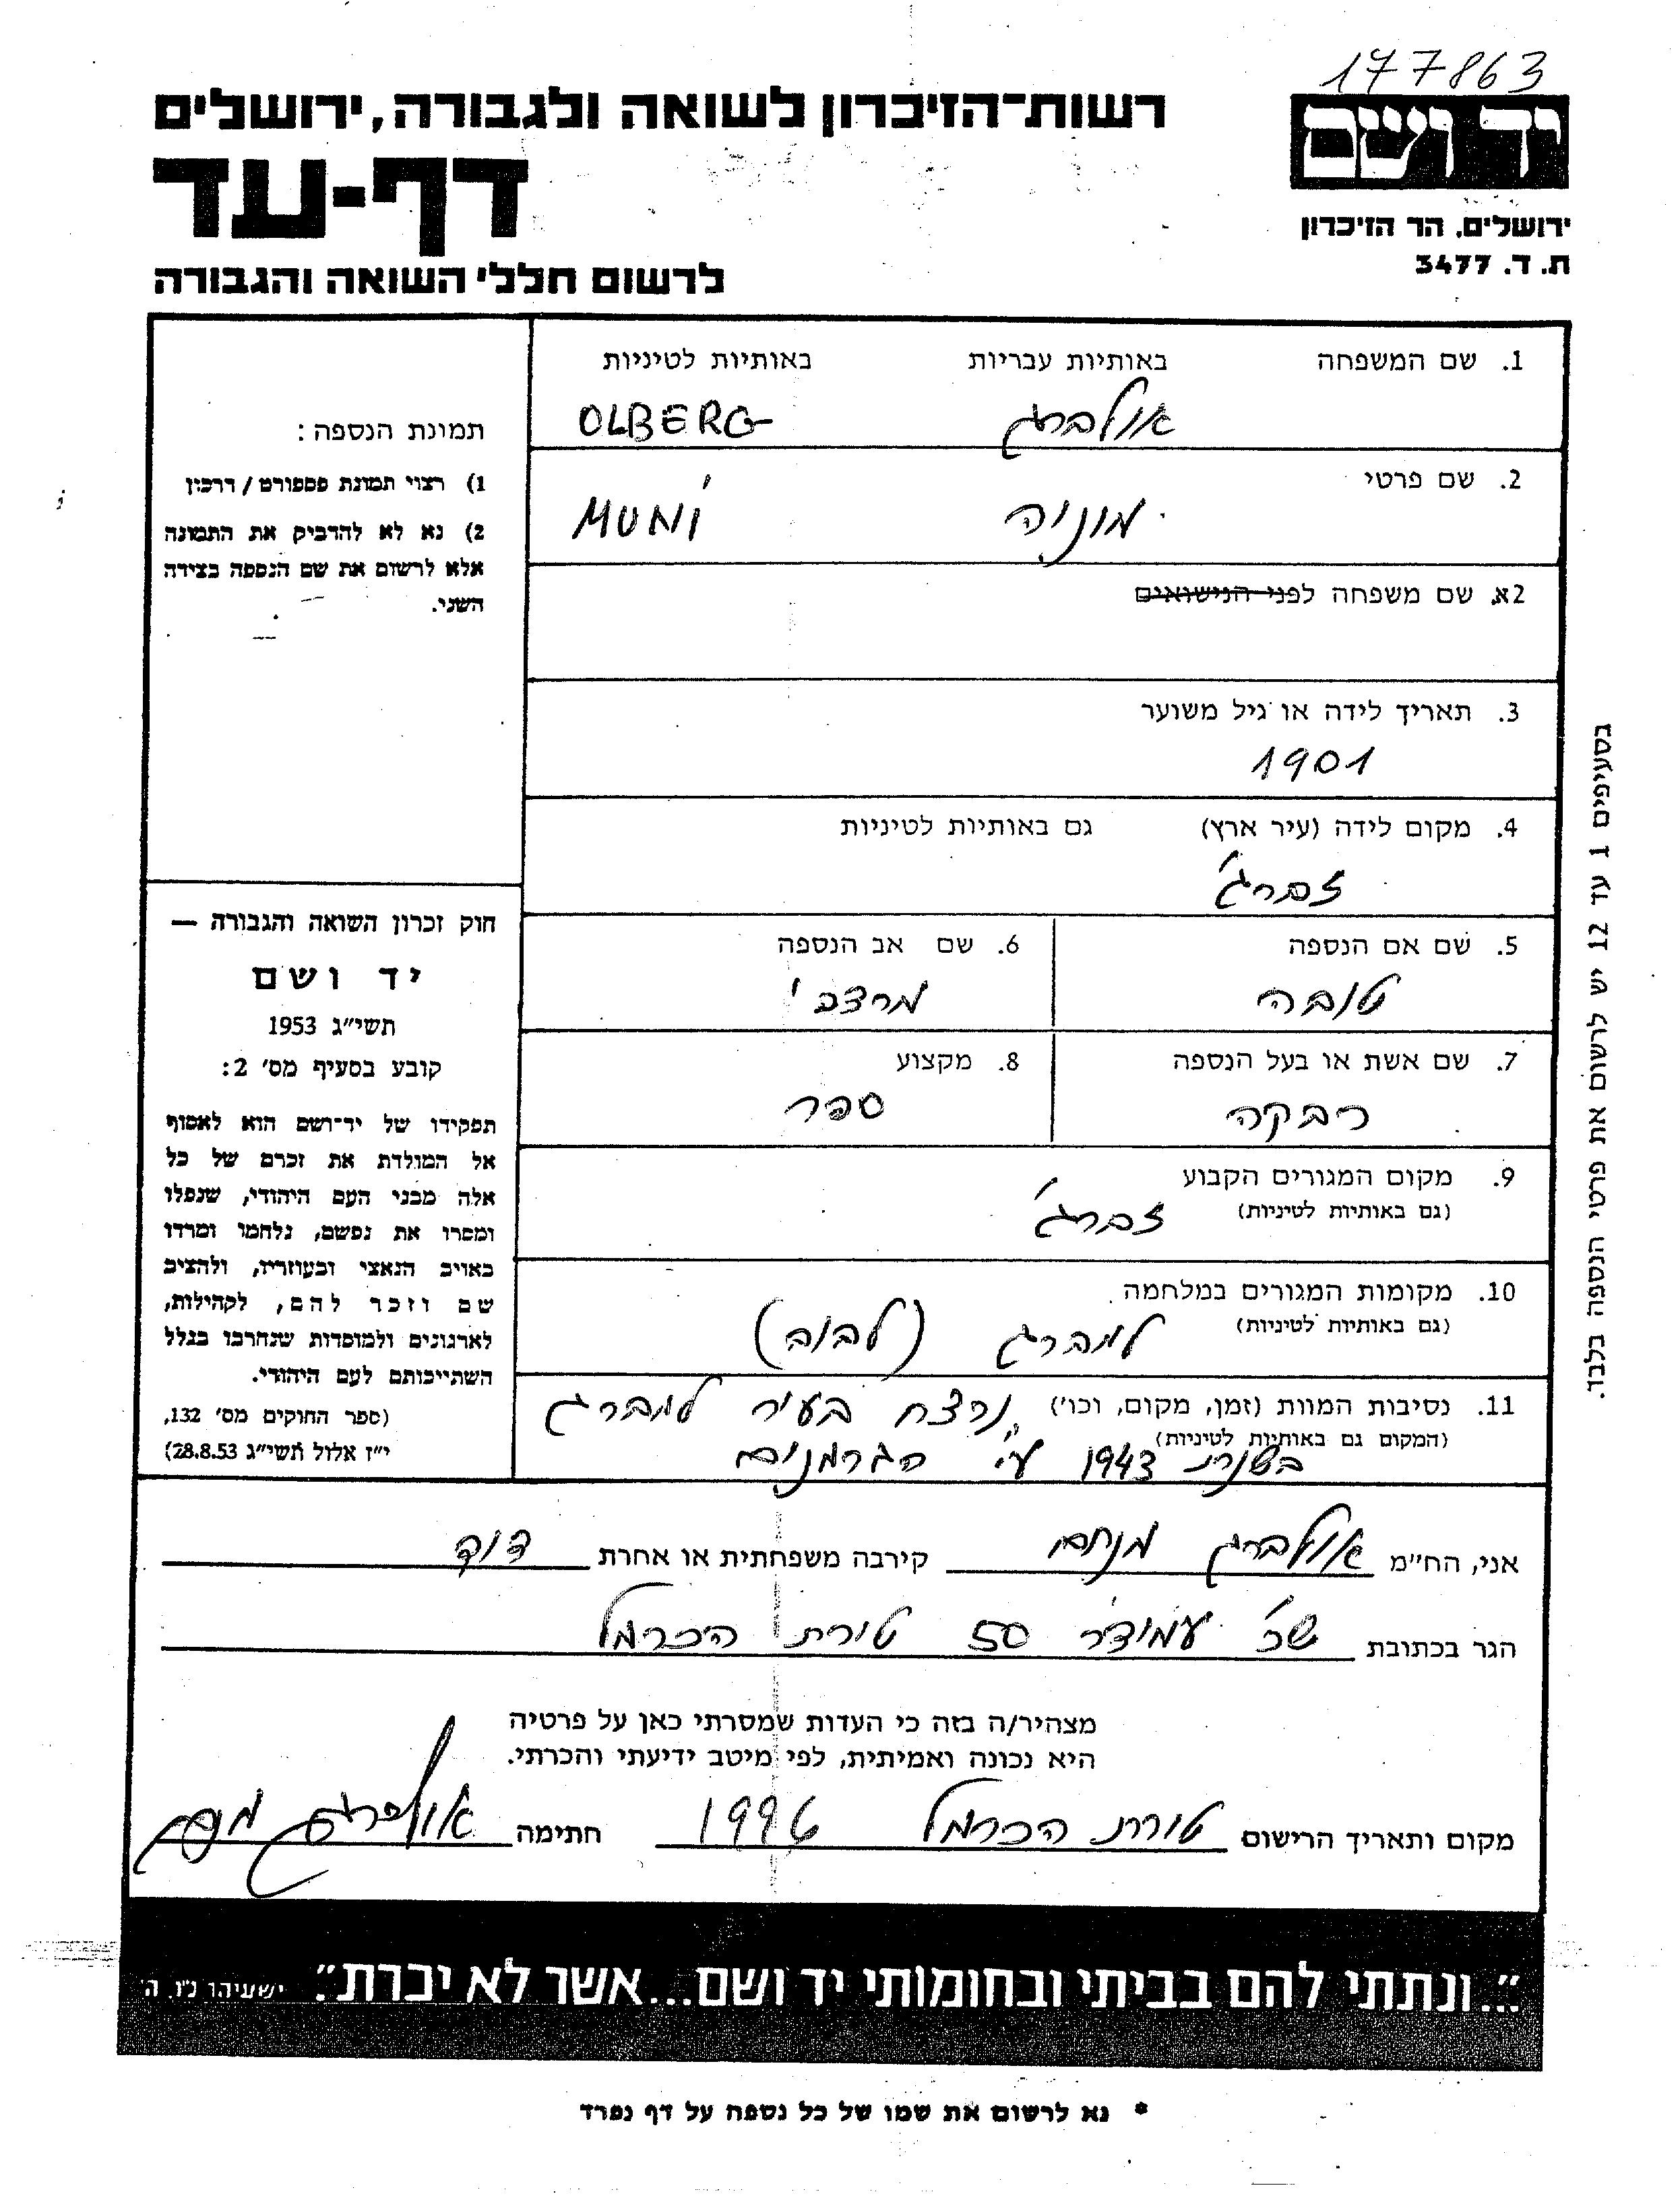 177863
יד ושם
ירושלים, הר הזיכרון
ת. ד. 3477
רשות-הזיכרון לשואה ולגבורה, ירושלים
דף-עד
לרשום חללי השואה והגבורה
1. שם המשפחה באותיות עבריות באותיות לטיניות
אולברג OLBERG
2. שם פרטי
מוניה MUNI
2א. שם משפחה לפני הנישואים
3. תאריך לידה או גיל משוער
1901
4. מקום לידה (עיר ארץ) גם באותיות לטיניות
זברג'
5. שם אם הנספה 6. שם אב הנספה
טובה מרצבי
7. שם אשת או בעל הנספה 8. מקצוע
רבקה ספר
9. מקום המגורים הקבוע
(גם באותיות לטיניות) זברג'
10. מקומות המגורים במלחמה
(גם באותיות לטיניות) למברג (לבוב)
11. נסיבות המוות (זמן, מקום, וכו') נרצח בעיר למברג
(המקום גם באותיות לטיניות)
בשנת 1943 ע"י הגרמנים
תמונת הנספה:
1) רצוי תמונת פספורט / דרכון
2) נא לא להדביק את התמונה
אלא לרשום את שם הנספה בצידה
השני.
חוק זכרון השואה והגבורה —
יד ושם
תשי"ג 1953
קובע בסעיף מס' 2:
תפקידו של יד-ושם הוא לאסוף
אל המולדת את זכרם של כל
אלה מבני העם היהודי, שנפלו
ומסרו את נפשם, נלחמו ומרדו
באויב הנאצי ובעוזריו, ולהציב
שם וזכר להם, לקהילות,
לארגונים ולמוסדות שנחרבו בגלל
השתייכותם לעם היהודי.
(ספר החוקים מס' 132,
י"ז אלול תשי"ג 28.8.53)
בסעיפים 1 עד 12 יש לרשום את פרטי הנספה בלבד.
אני, הח"מ אולברג מנחם קירבה משפחתית או אחרת דוד
הגר בכתובת שכ' עמידר 50 טירת הכרמל
מצהיר/ה בזה כי העדות שמסרתי כאן על פרטיה
היא נכונה ואמיתית, לפי מיטב ידיעתי והכרתי.
מקום ותאריך הרישום טירת הכרמל 1996 חתימה אולברג מנחם
"...ונתתי להם בביתי ובחומותי יד ושם...אשר לא יכרת." ישעיהו נו, ה'
* נא לרשום את שמו של כל נספה על דף נפרד